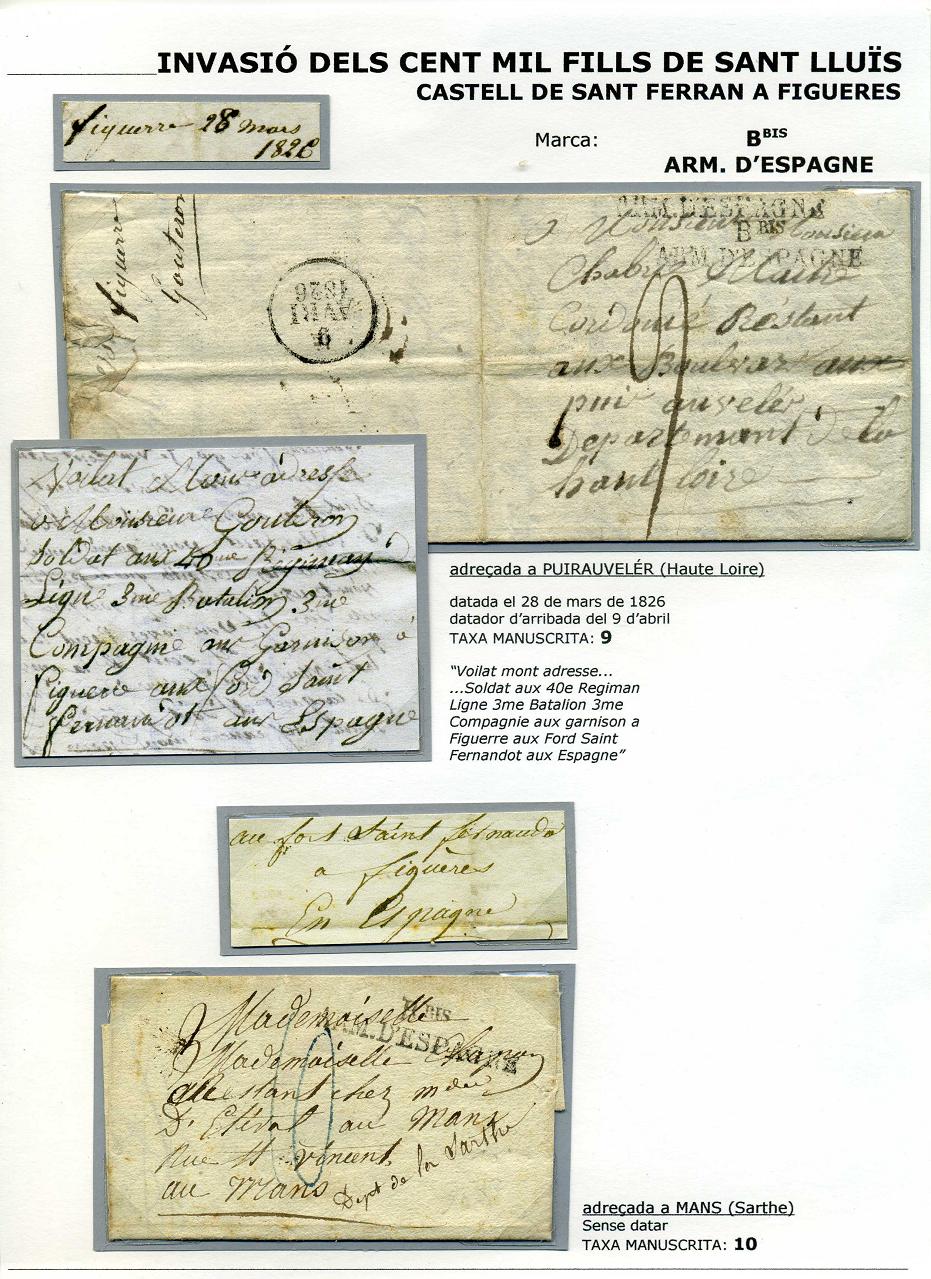 INVASIÓ DELS CENT MIL FILLS DE SANT LLUÏS
CASTELL DE SANT FERRAN A FIGUERES
figuerre 28 mars
1826
Marca:
B BIS
ARM. D'ESPAGNE
figuerre
Gouteron
9
AVRIL
1826
ARM. D'ESPAGNE
B BIS
ARM. D'ESPAGNE
a Monsieur Monsieur
Cordonié Réstant
aux Boulvar aux
puir auvelér
Departemant de la
haut loire
9
Voilat Mont adresse
a Monsieur Gouteron
Soldat aux 40 me Regiman
Ligne 3me Batalion 3me
Compagnie aux Garnison a
Figuerre aux Ford Saint
Fernandot aux Espagne
adreçada a PUIRAUVELÉR (Haute Loire)
datada el 28 de mars de 1826
datador d'arribada del 9 d'abril
TAXA MANUSCRITA: 9
"Voilat mont adresse...
...Soldat aux 40e Regiman
Ligne 3me Batalion 3me
Compagnie aux garnison a
Figuerre aux Ford Saint
Fernandot aux Espagne"
au fort Saint fernando
a figuères
En Espagne
B BIS
ARM. D'ESPAGNE
Mademoiselle
Mademoiselle
restant chez mde
au Mans
Rue St vincent
au Mans
Dept de la Sarthe
adreçada a MANS (Sarthe)
Sense datar
TAXA MANUSCRITA: 10